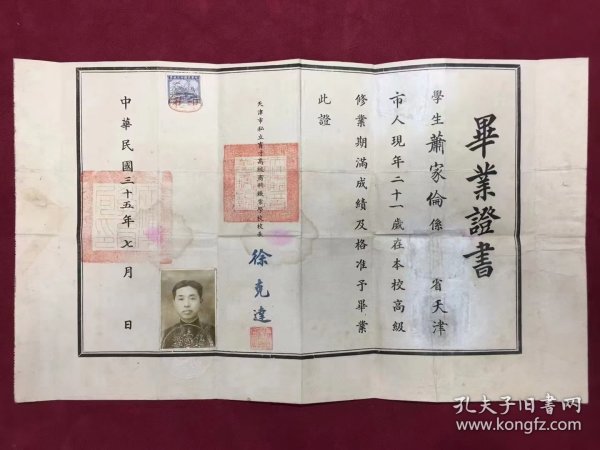 畢業證書
學生蕭家倫係 省天津
市人現年二十一歲在本校高級
修業期滿成績及格准予畢業
此證
天津市私立育才高級商科職業學校校長
徐克達
中華民國三十五年七月 日
孔夫子旧书网
www.kongfz.com